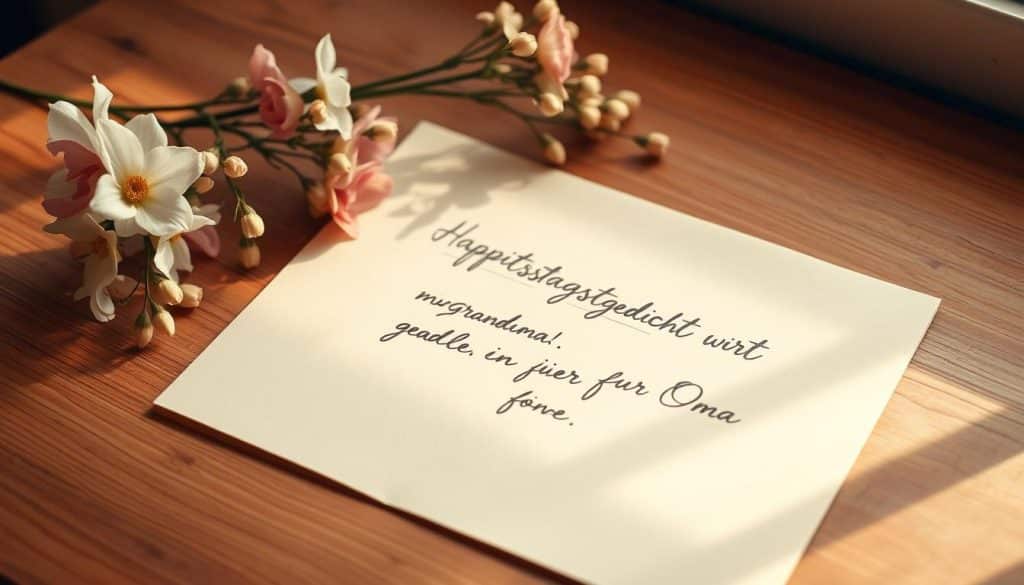 Happitsstagstgedicht wirt
mugrandma!.
geadle, in jüer fur Oma
fowe.